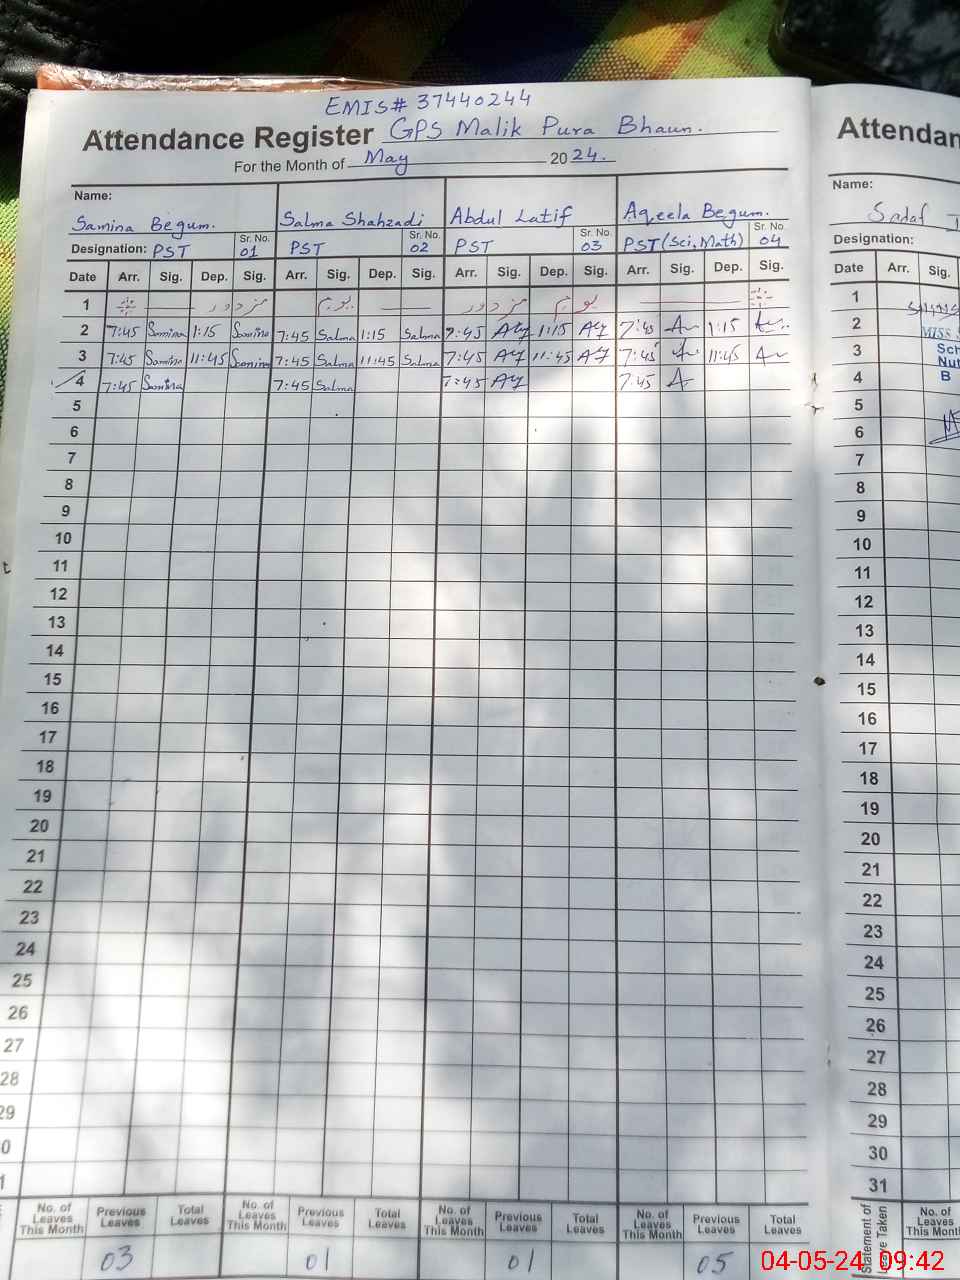 EMIS# 37440244
Attendance Register GPS Malik Pura Bhaun.
For the Month of May 2024.
Name:
Samina Begum. Salma Shahzadi Abdul Latif Aqeela Begum.
Designation: PST Sr. No. 01 PST Sr. No. 02 PST Sr. No. 03 PST (Sci, Math) Sr. No. 04
Date Arr. Sig. Dep. Sig. Arr. Sig. Dep. Sig. Arr. Sig. Dep. Sig. Arr. Sig. Dep. Sig.
1 یوم مزدور یوم مزدور
2 7:45 Samina 1:15 Samina 7:45 Salma 1:15 Salma 7:45 1:15 7:45 1:15
3 7:45 Samina 11:45 Samina 7:45 Salma 11:45 Salma 7:45 11:45 7:45 11:45
4 7:45 Samina 7:45 Salma 7:45 7:45
5
6
7
8
9
10
11
12
13
14
15
16
17
18
19
20
21
22
23
24
25
26
27
28
29
No. of Leaves This Month Previous Leaves Total Leaves No. of Leaves This Month Previous Leaves Total Leaves No. of Leaves This Month Previous Leaves Total Leaves No. of Leaves This Month Previous Leaves Total Leaves
03 01 01 05
Name:
Sadaf
Designation:
Date Arr. Sig.
1
2 MISS
3 Sch
4 B
5
6
7
8
9
10
11
12
13
14
15
16
17
18
19
20
21
22
23
24
25
26
27
28
29
30
31
Statement of Leave Taken
No. of Leaves This Month
04-05-24 09:42